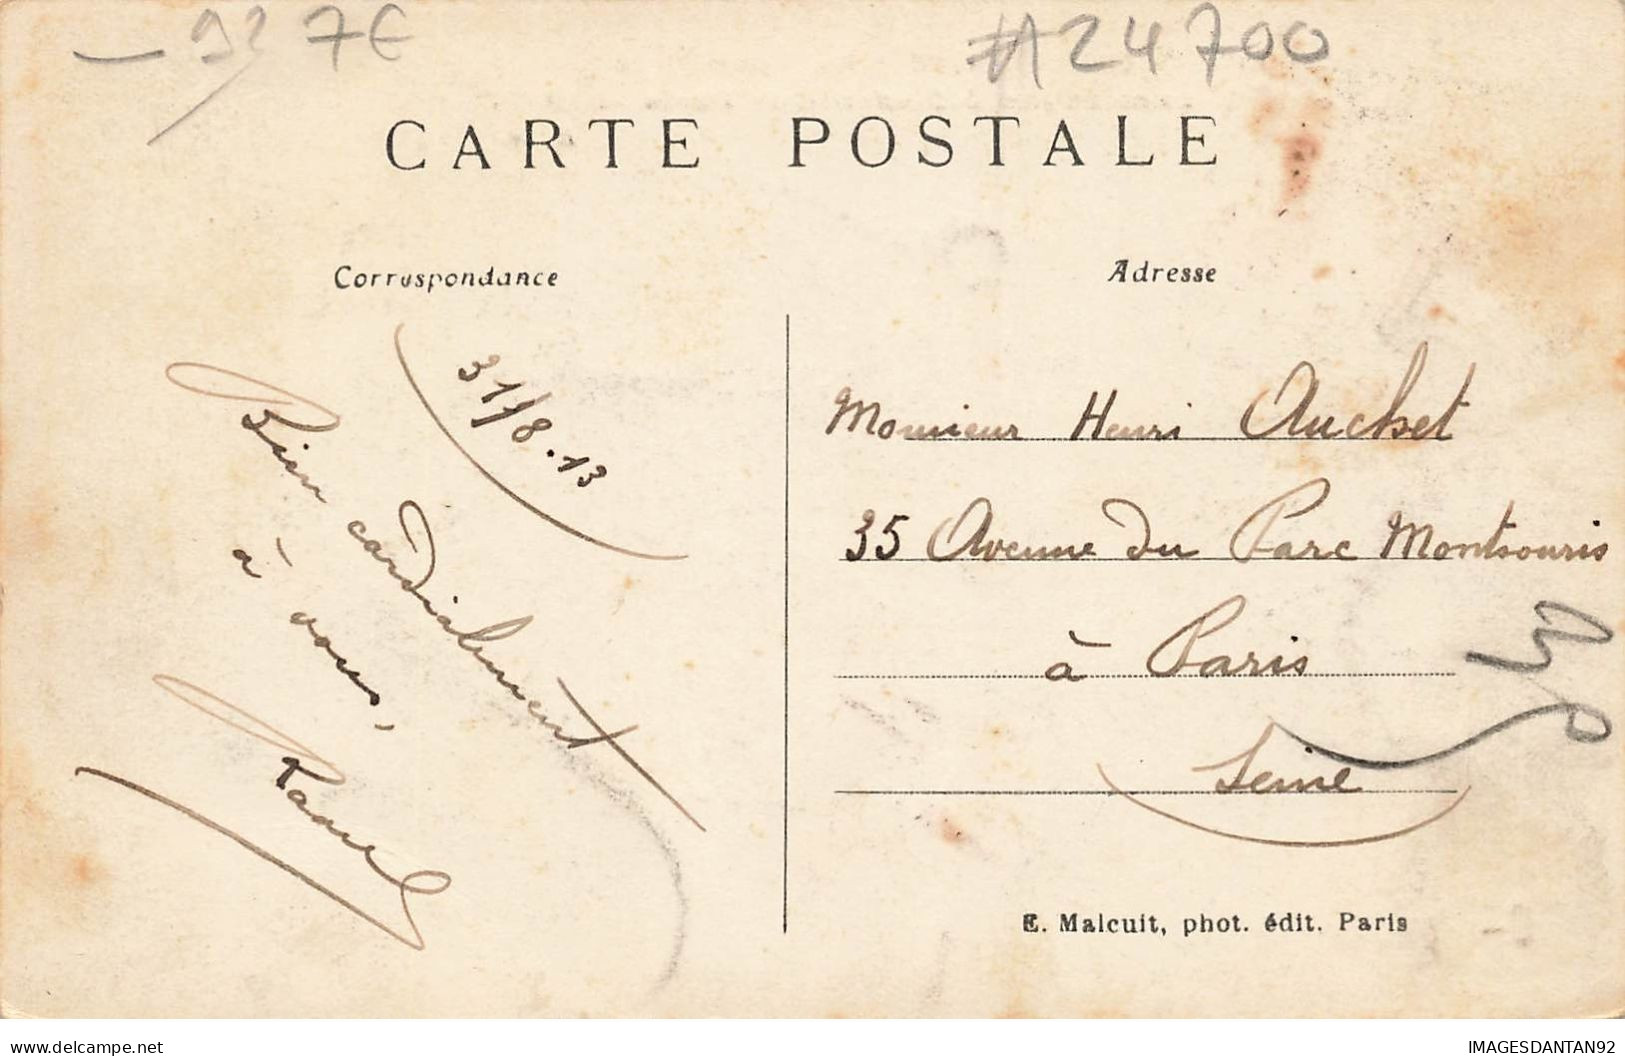 92 7€
#24700
CARTE POSTALE
Correspondance
Adresse
31/8.13
Bien cordialement
à vous,
Raoul
Monsieur Henri Auchet
35 Avenue du Parc Montsouris
à Paris
Seine
E. Malcuit, phot. édit. Paris
delcampe.net
IMAGESDANTAN92